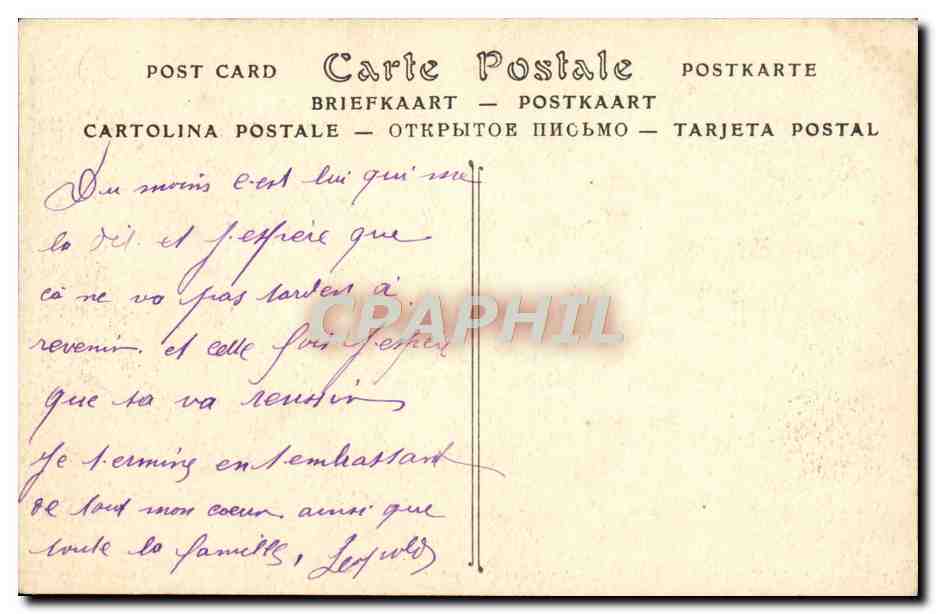 POST CARD Carte Postale POSTKARTE
BRIEFKAART — POSTKAART
CARTOLINA POSTALE — ОТКРЫТОЕ ПИСЬМО — TARJETA POSTAL
Du moins c'est lui qui me
la dit. et j'espère que
ca ne va pas tarder à
revenir. et cette fois j'espère
que sa va reussir
Je termine en t'embrassant
de tout mon coeur ainsi que
toute la famille, Leopold
CPAPHIL